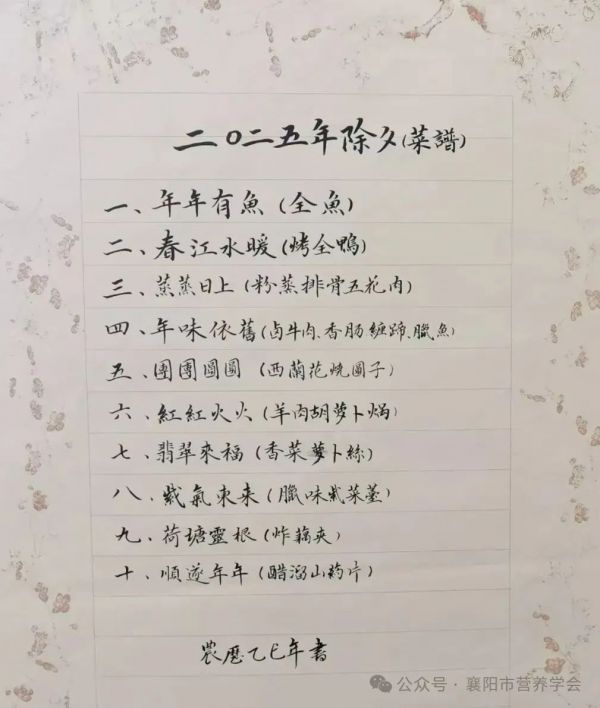 二〇二五年除夕(菜譜)
一、年年有魚(全魚)
二、春江水暖(烤全鴨)
三、蒸蒸日上(粉蒸排骨五花肉)
四、年味依舊(卤牛肉、香肠纏蹄、臘魚)
五、團團圓圓(西蘭花烧圓子)
六、紅紅火火(羊肉胡萝卜焗)
七、翡翠來福(香菜萝卜絲)
八、紫氣東来(臘味紫菜薹)
九、荷塘靈根(炸藕夹)
十、順遂年年(醋溜山药片)
農歷乙巳年書
公众号·襄阳市营养学会